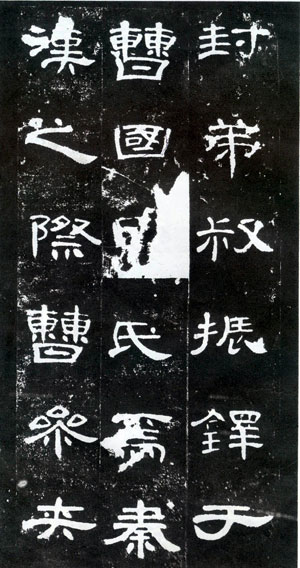 封弟叔振鐸于
曹國因氏焉秦
漢之際曹參夾